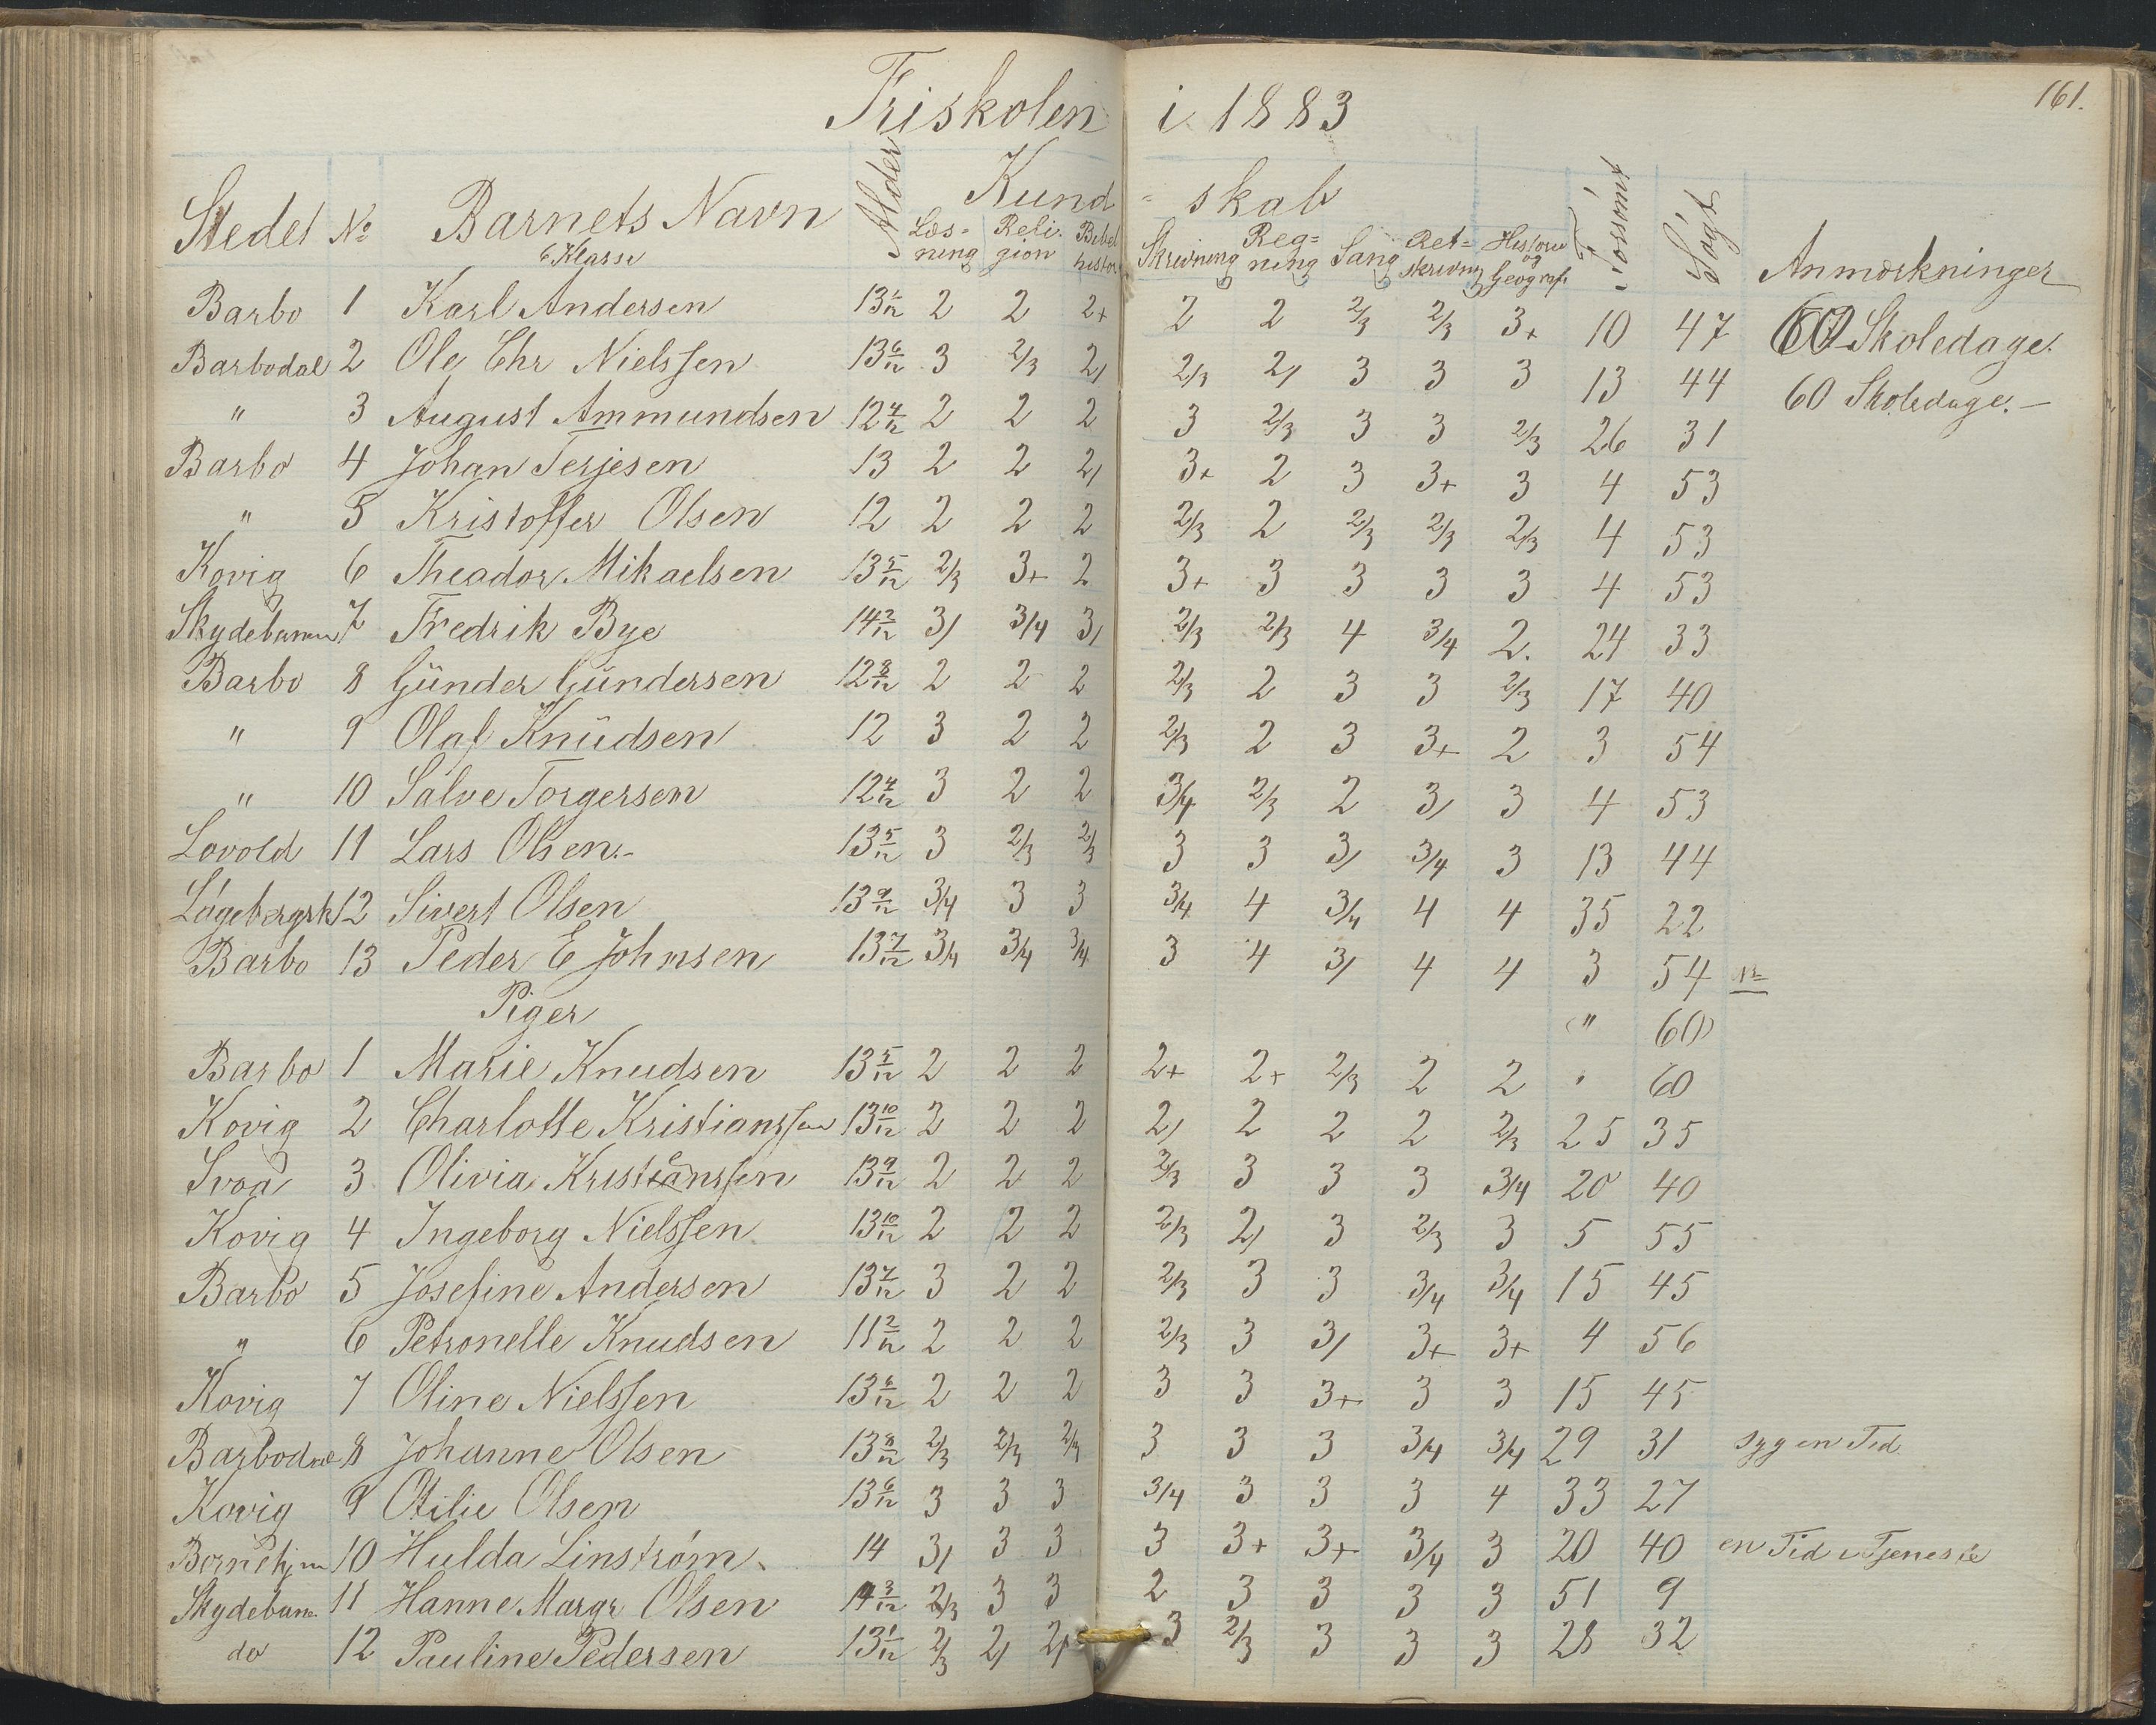 161.
Friskolen i 1883
Stedet No Barnets Navn Alder Kund = skab Forsømt Søgt Anmærkninger
6 Klasse Læs= ning Reli. gion Bibel histor Skrivning Reg= ning Sang Ret= skrivning Historie og Geografi
Barbo 1 Karl Andersen 13 1/12 2 2 2+ 2 2 2/3 2/3 3+ 10 47 60 Skoledage.
Barbodal 2 Ole Chr Nielssen 13 6/12 3 2/3 2/ 2/3 2/ 3 3 3 13 44 60 Skoledage.—
" 3 August Ammundsen 12 4/12 2 2 2 3 2/3 3 3 2/3 26 31
Barbo 4 Johan Terjesen 13 2 2 2/ 3+ 2 3 3+ 3 4 53
" 5 Kristoffer Olsen 12 2 2 2 2/3 2 2/3 2/3 2/3 4 53
Kovig 6 Theador Mikaelsen 13 5/12 2/3 3+ 2 3+ 3 3 3 3 4 53
7 Fredrik Bye 14 2/12 3/ 3/4 3/ 2/3 2/3 4 3/4 2. 24 33
Barbo 8 Günder Gündersen 12 8/12 2 2 2 2/3 2 3 3 2/3 17 40
" 9 Olaf Knüdsen 12 3 2 2 2/3 2 3 3+ 2 3 54
" 10 Salve Torgersen 12 4/12 3 2 2 3/4 2/3 2 3/ 3 4 53
Lovold 11 Lars Olsen.- 13 5/12 3 2/3 2/3 3 3 3/ 3/4 3 13 44
12 Sivert Olsen 13 9/12 3/4 3 3 3/4 4 3/4 4 4 35 22
Barbo 13 Peder E Johnsen 13 7/12 3/4 3/4 3/4 3 4 3/ 4 4 3 54
Piger (" 60)
Barbo 1 Marie Knudsen 13 5/12 2 2 2 2+ 2+ 2/3 2 2 " 60
Kovig 2 Charlotte Kristianssen 13 10/12 2 2 2 2/ 2 2 2 2/3 25 35
Svoa 3 Olivia Kristenssen 13 9/12 2 2 2 2/3 3 3 3 3/4 20 40
Kovig 4 Ingeborg Nielssen. 13 10/12 2 2 2 2/3 2/ 3 2/3 3 5 55
Barbo 5 Josefine Andersen 13 7/12 3 2 2 2/3 3 3 3/4 3/4 15 45
" 6 Petronelle Knudsen 11 2/12 2 2 2 2/3 3 3/ 3+ 3+ 4 56
Kovig 7 Oline Nielssen 13 6/12 2 2 2 3 3 3+ 3 3 15 45
Barbodal 8 Johanne Olsen 13 8/12 2/3 2/3 2/3 3 3 3 3/4 3/4 29 31 syg en Tid
Kovig 9 Otilie Olsen 13 6/12 3 3 3 3/4 3 3 3 4 33 27
10 Hulda Linstrøm. 14 3/ 3 3 3 3+ 3+ 3/4 3 20 40 en Tid i Tjeneste
Skydebane 11 Hanne Margr Olsen 14 3/12 2/3 3 3 2 3 3 3 3 51 9
do 12 Pauline Pedersen 13 1/12 2/3 2/ 2/ 3 2/3 3 3 3 28 32